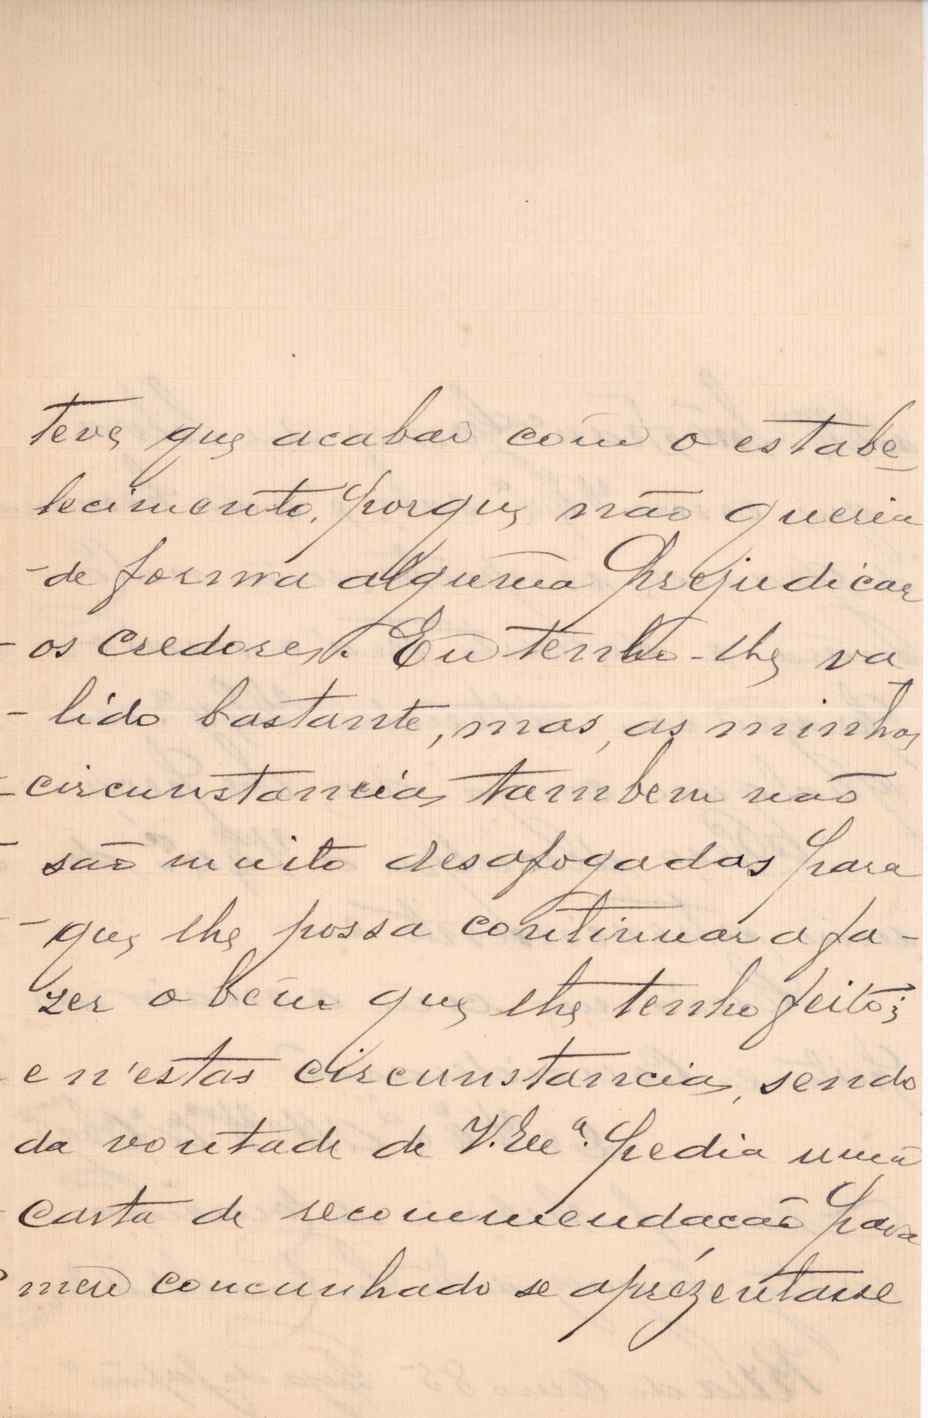 teve que acabar com o estabe-
lecimento, porque não queria
de forma alguma prejudicar
os credores. Eu tenho-lhe va
lido bastante, mas, as minhas
circunstancias tambem não
são muito desafogadas para
que lhe possa continuar a fa-
zer o bem que lhe tenho feito;
e n'estas circunstancias, sendo
da vontade de V. Exª. pedia uma
carta de recommendação para
meu concunhado se aprézentasse